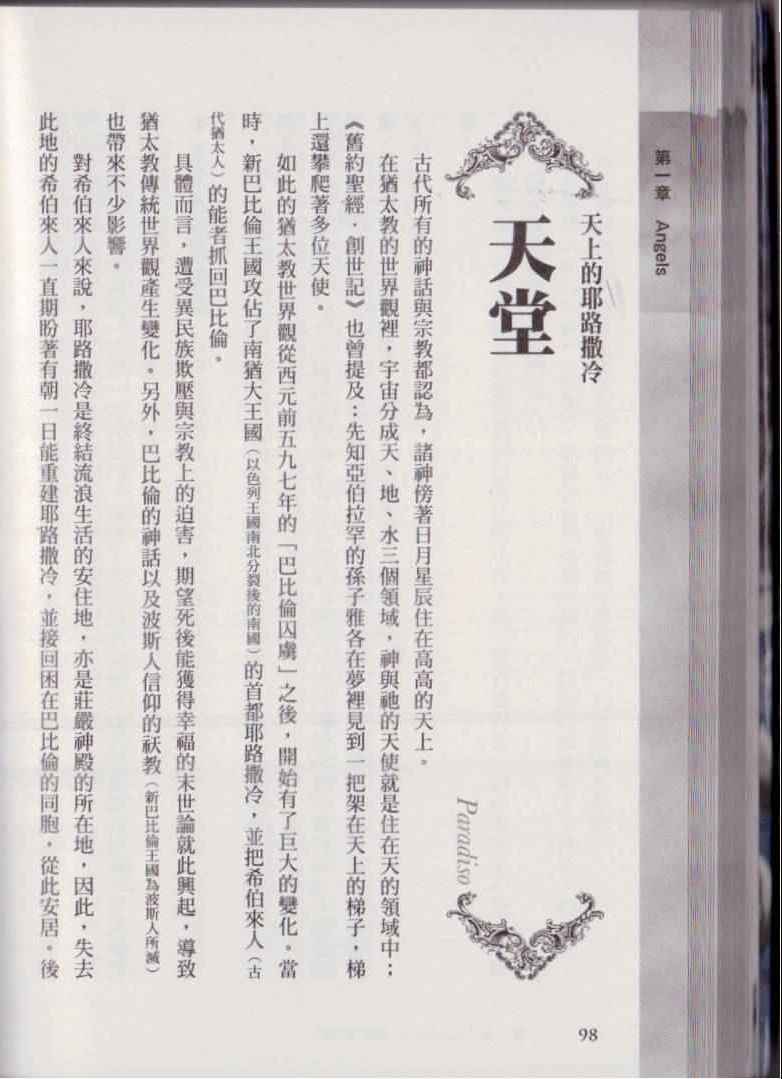 第一章 Angels
天上的耶路撒冷
天堂
Paradiso
古代所有的神話與宗教都認為，諸神傍著日月星辰住在高高的天上。
在猶太教的世界觀裡，宇宙分成天、地、水三個領域，神與祂的天使就是住在天的領域中；
《舊約聖經．創世記》也曾提及：先知亞伯拉罕的孫子雅各在夢裡見到一把架在天上的梯子，梯
上還攀爬著多位天使。
如此的猶太教世界觀從西元前五九七年的「巴比倫囚虜」之後，開始有了巨大的變化。當
時，新巴比倫王國攻佔了南猶大王國（以色列王國南北分裂後的南國）的首都耶路撒冷，並把希伯來人（古
代猶太人）的能者抓回巴比倫。
具體而言，遭受異民族欺壓與宗教上的迫害，期望死後能獲得幸福的末世論就此興起，導致
猶太教傳統世界觀產生變化。另外，巴比倫的神話以及波斯人信仰的祆教（新巴比倫王國為波斯人所滅）
也帶來不少影響。
對希伯來人來說，耶路撒冷是終結流浪生活的安住地，亦是莊嚴神殿的所在地，因此，失去
此地的希伯來人一直期盼著有朝一日能重建耶路撒冷，並接回困在巴比倫的同胞，從此安居。後
98